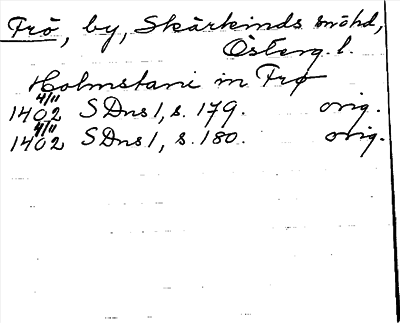 Frö, by, Skärkinds snöhd,
Österg. l.
Holmstani in Frø
4/11
1402 SDns1, s. 179. orig.
4/11
1402 SDns1, s. 180. orig.